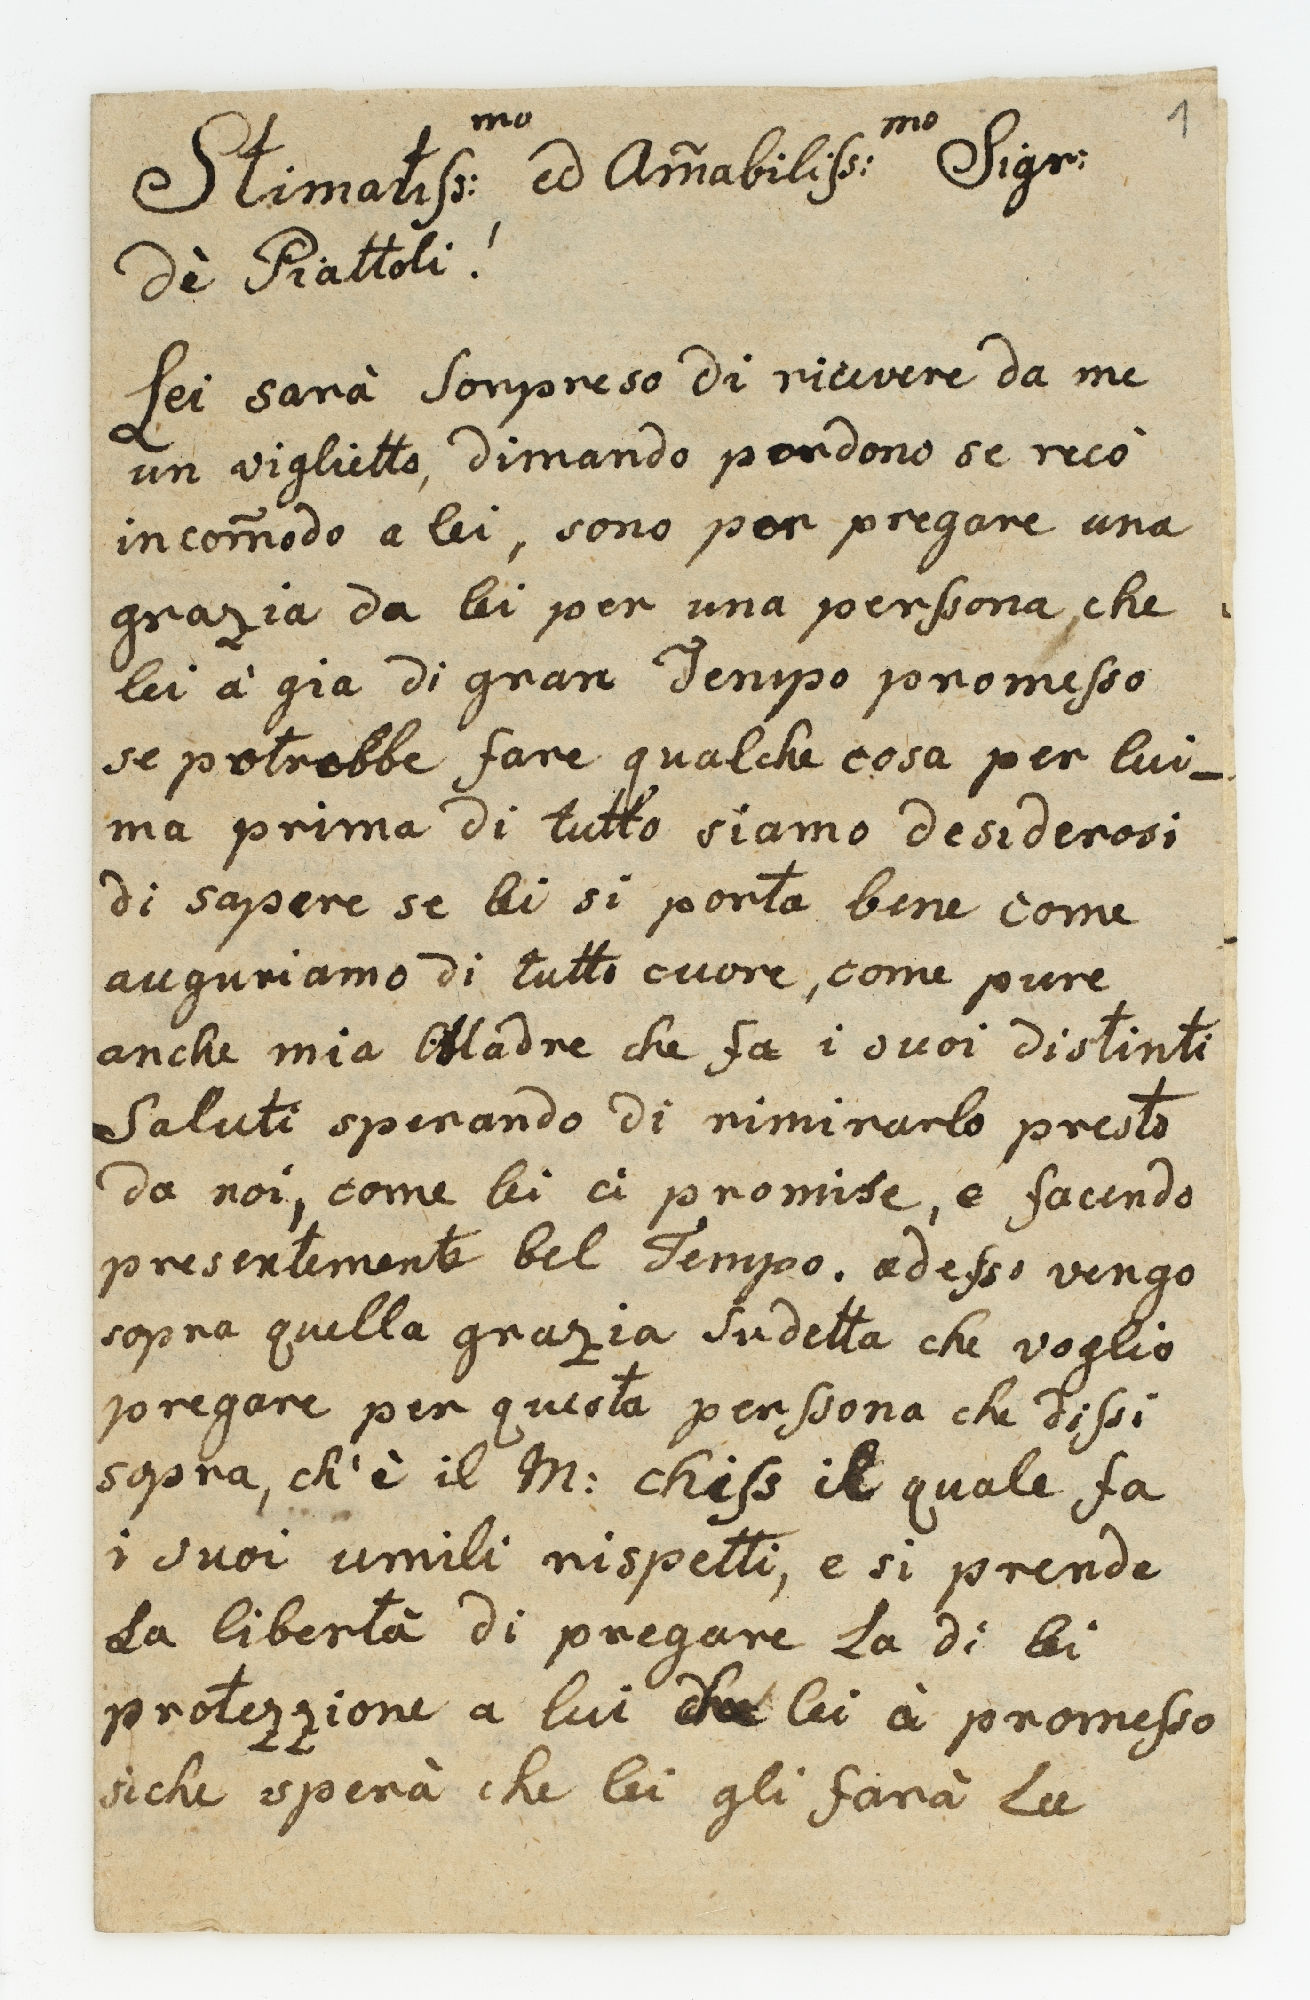 1
Stimatiss:mo ed Am̄abiliss:mo Sigr:
dè Piattoli!
Lei sarà sorpreso di ricevere da me
un viglietto, dimando perdono se recò
incom̄odo a lei, sono per pregare una
grazia da lei per una perssona, che
lei à gia di gran Tempo promesso
se potrebbe fare qualche cosa per lui_
ma prima di tutto siamo desiderosi
di sapere se lei si porta bene come
auguriamo di tutto cuore, come pure
anche mia Madre che fa i suoi distinti
Saluti sperando di rimirarlo presto
da noi, come lei ci promise, e facendo
presentemente bel Tempo. adesso vengo
sopra quella grazia sudetta che voglio
pregare per questa perssona che dissi
sopra, ch'è il M: chiss il quale fa
i suoi umili rispetti, e si prende
La libertà di pregare La di lei
protezzione a lui che lei à promesso
siche sperà che lei gli farà La